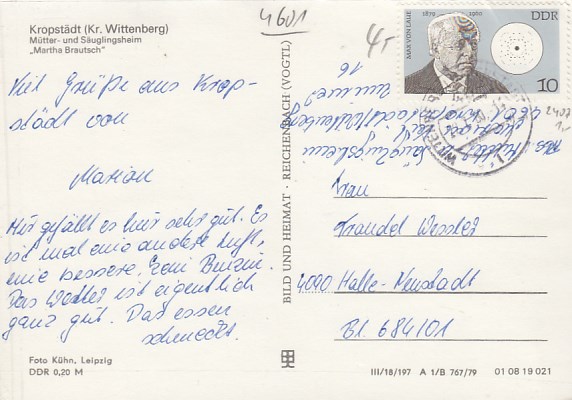 Kropstädt (Kr. Wittenberg)
Mütter- und Säuglingsheim
„Martha Brautsch"
4601
4,-
MAX VON LAUE 1879 1960
DDR
10
16
2407
Viel Grüße aus Krop-
städt von
Marion
Mir gefällt es hier sehr gut. Es
ist mal eine andere Luft,
eine bessere.
Das Wetter ist eigentlich
ganz gut. Das essen
schmeckt.
BILD UND HEIMAT · REICHENBACH (VOGTL)
Frau
Traudel Wessler
4090 Halle-Neustadt
Bl. 684/01
Foto Kühn, Leipzig
DDR 0,20 M
III/18/197 A 1/B 767/79 01 08 19 021